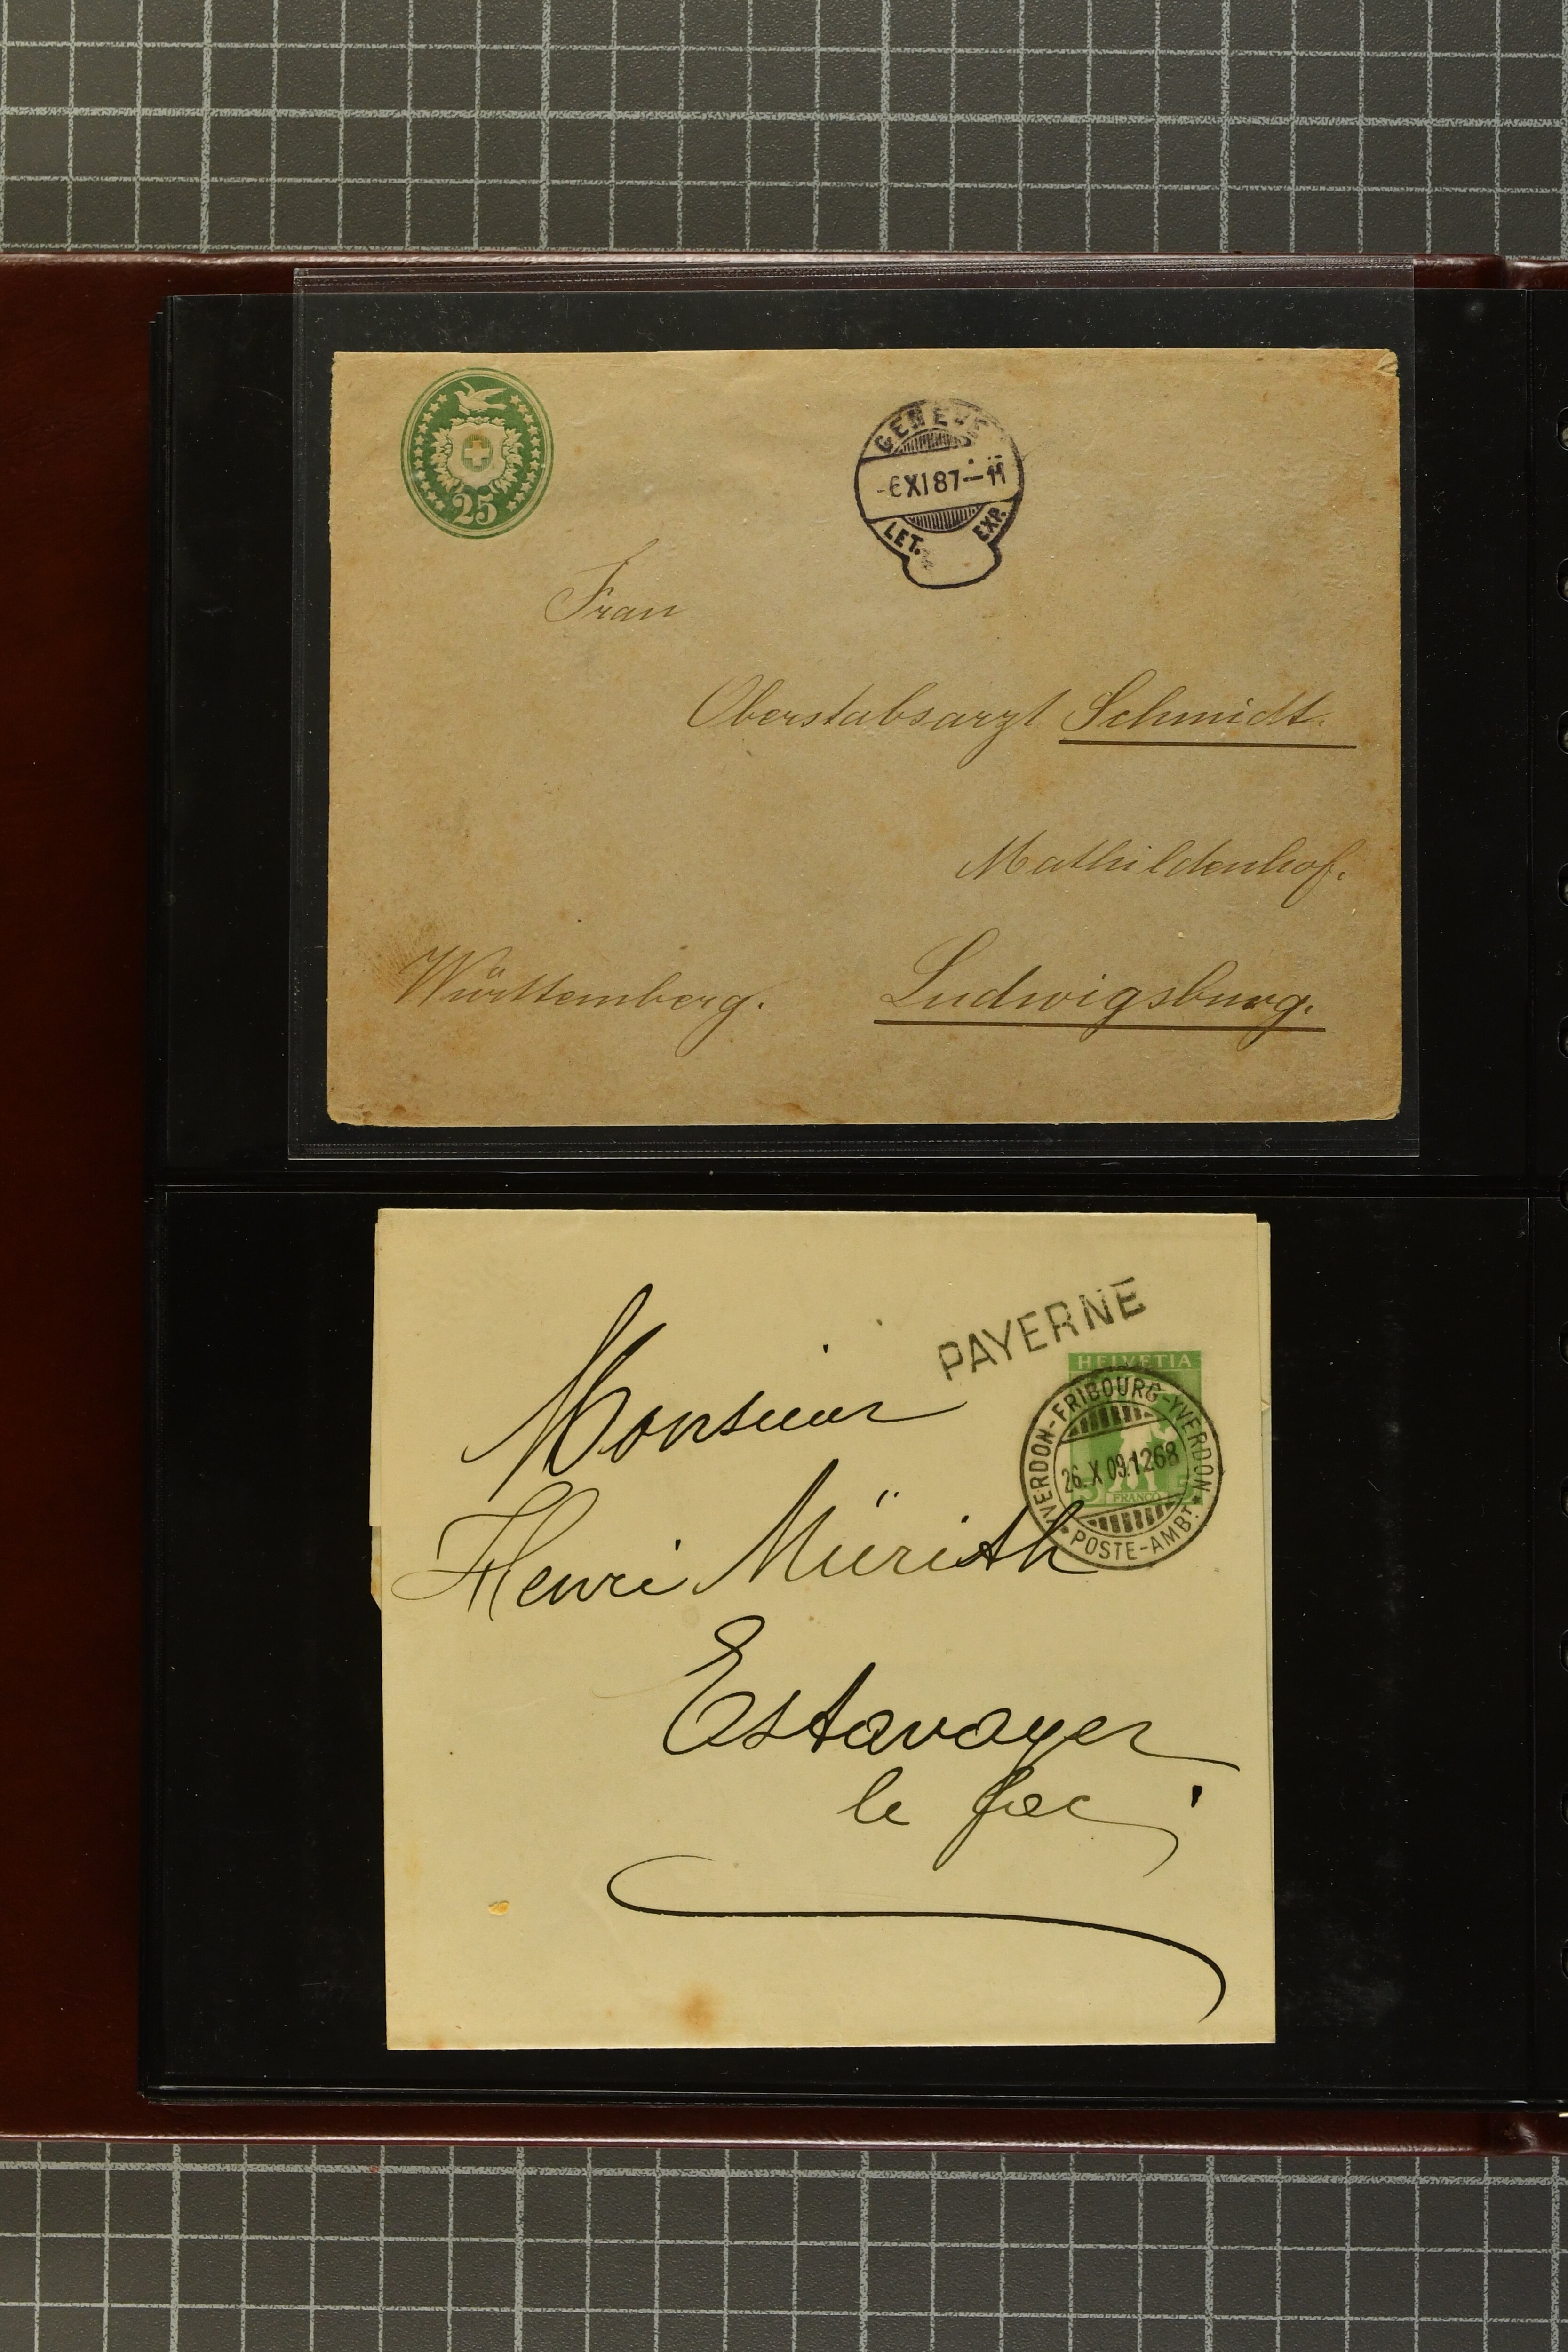 25
GENÈVE
-6 XI 87-11
LET. EXP.
Frau
Oberstabsarzt Schmidt.
Mathildenhof.
Württemberg. Ludwigsburg.
PAYERNE
HELVETIA
YVERDON-FRIBOURG-YVERDON
26. X 09.1268
FRANCO
POSTE-AMBT
Monsieur
Henri Mürith
Estavayer
le lac